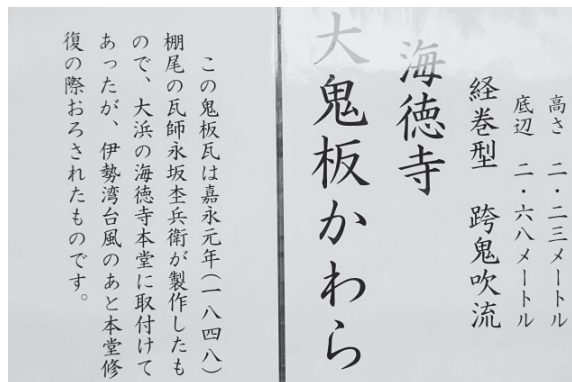 高さ 二・二三メートル
底辺 二・六八メートル
経巻型 跨鬼吹流
海徳寺
大鬼板かわら
この鬼板瓦は嘉永元年(一八四八)
棚尾の瓦師永坂杢兵衛が製作したも
ので、大浜の海徳寺本堂に取付けて
あったが、伊勢湾台風のあと本堂修
復の際おろされたものです。